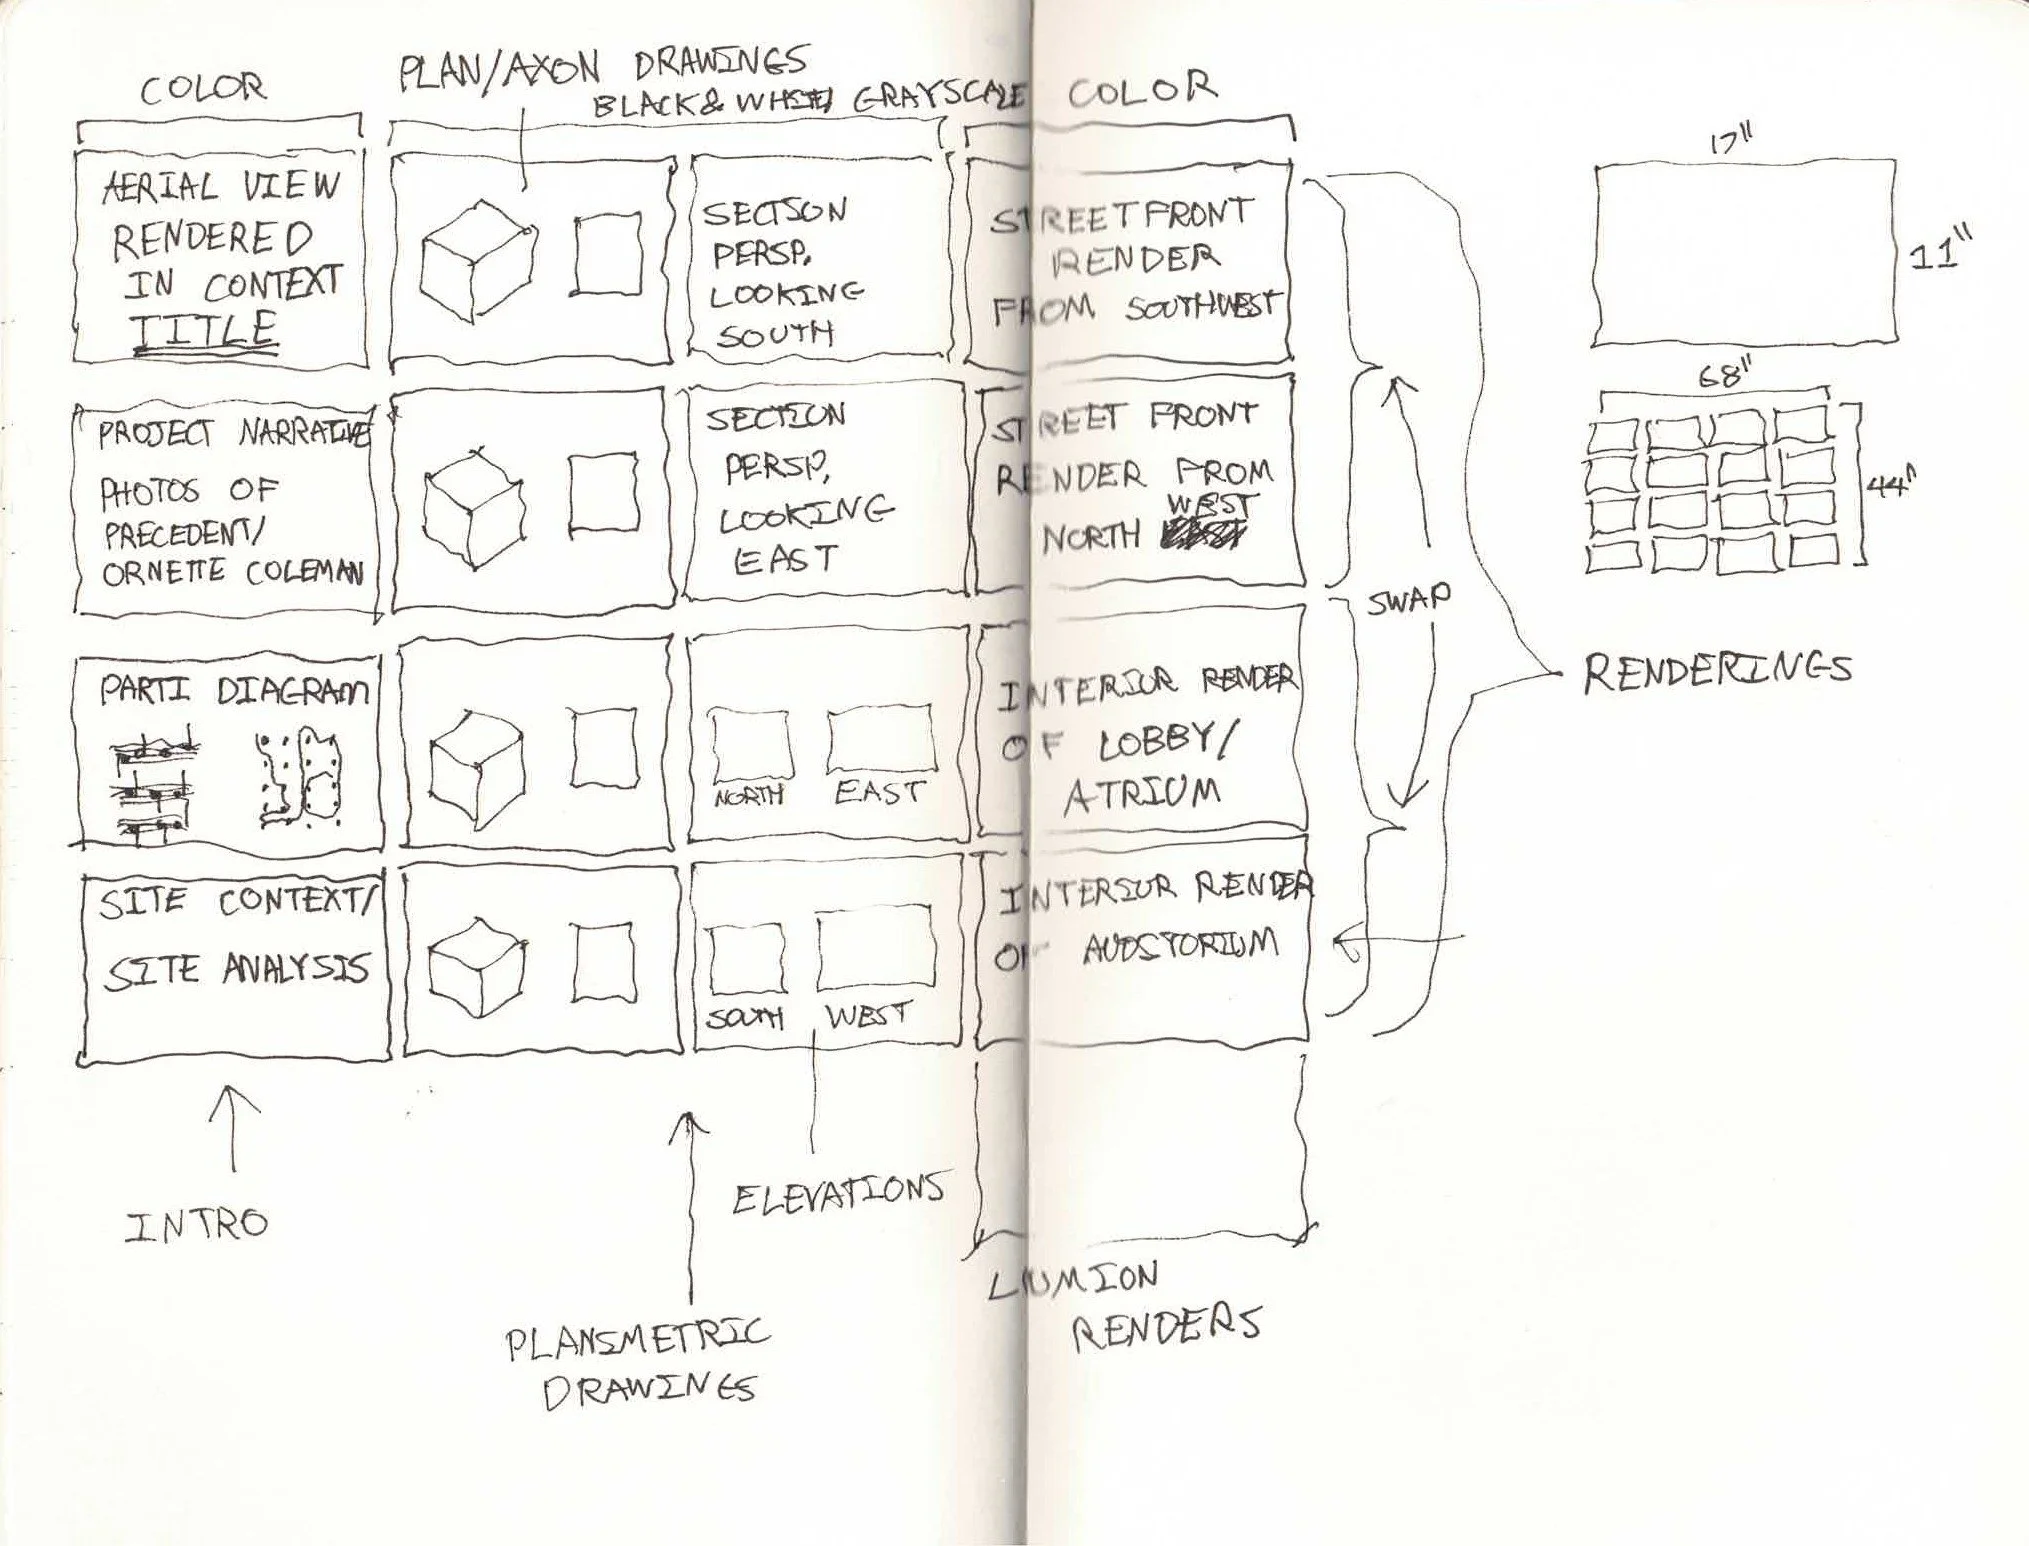 COLOR
PLAN/AXON DRAWINGS
BLACK & WHITE/ GRAYSCALE
COLOR
AERIAL VIEW
RENDERED
IN CONTEXT
TITLE
SECTION
PERSP.
LOOKING
SOUTH
STREETFRONT
RENDER
FROM SOUTHWEST
17"
11"
PROJECT NARRATIVE
PHOTOS OF
PRECEDENT/
ORNETTE COLEMAN
SECTION
PERSP.
LOOKING
EAST
STREET FRONT
RENDER FROM
WEST
NORTH
68"
44"
SWAP
RENDERINGS
PARTI DIAGRAM
NORTH
EAST
INTERIOR RENDER
OF LOBBY/
ATRIUM
SITE CONTEXT/
SITE ANALYSIS
SOUTH
WEST
INTERIOR RENDER
OF AUDITORIUM
INTRO
ELEVATIONS
PLANIMETRIC
DRAWINGS
LUMION
RENDERS